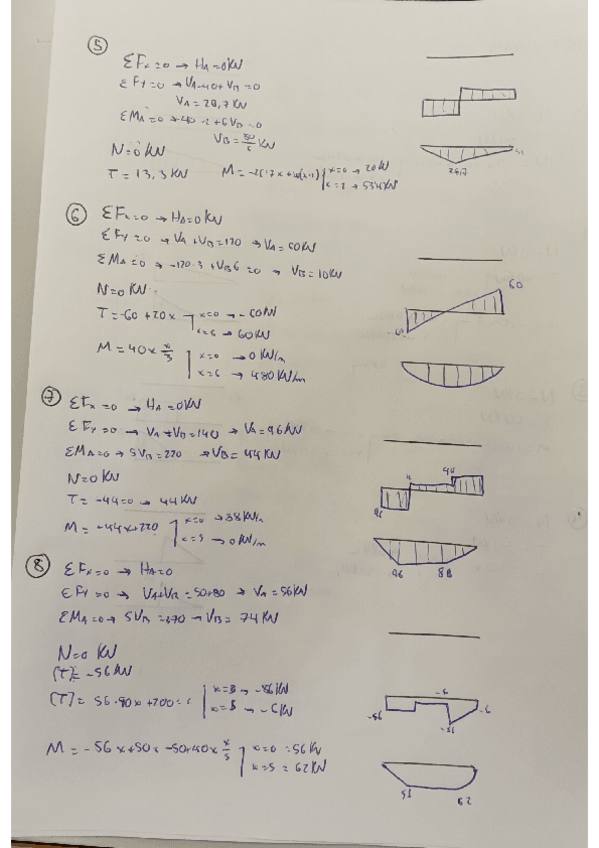 5
ΣFx=0 → HA=0KN
ΣFy=0 → VA-40+VB=0
VA=26,7KN
ΣMA=0 → 40·2+6VB=0
VB=80/6 KN
N=0KN
T=13,3KN
x=0 → 20KN
6
ΣFx=0 → HA=0KN
ΣFy=0 → VA+VB=120 → VA=60KN
ΣMA=0 → -120·3+VB6=0 → VB=10KN
N=0KN
T=-60+20x x=0 → -60KN
x=6 → 60KN
60
M=40x x/3 x=0 → 0KN/m
x=6 → 480KN/m
7
ΣFx=0 → HA=0KN
ΣFy=0 → VA+VB=140 → VA=96KN
ΣMA=0 → 5VB=220 → VB=44KN
N=0KN
T=-44=0 → 44KN
96
M=-44x+220 x=0 → 88KN/m
x=5 → 0KN/m
96 88
8
ΣFx=0 → HA=0
ΣFy=0 → VA+VB=50+80 → VA=56KN
ΣMA=0 → 5VB=370 → VB=74KN
N=0KN
(T)=-56KN
x=5 → -6KN
-56 -6
M=-56x+50x-50+40x x/5 x=0=56KN
x=5=62KN
62